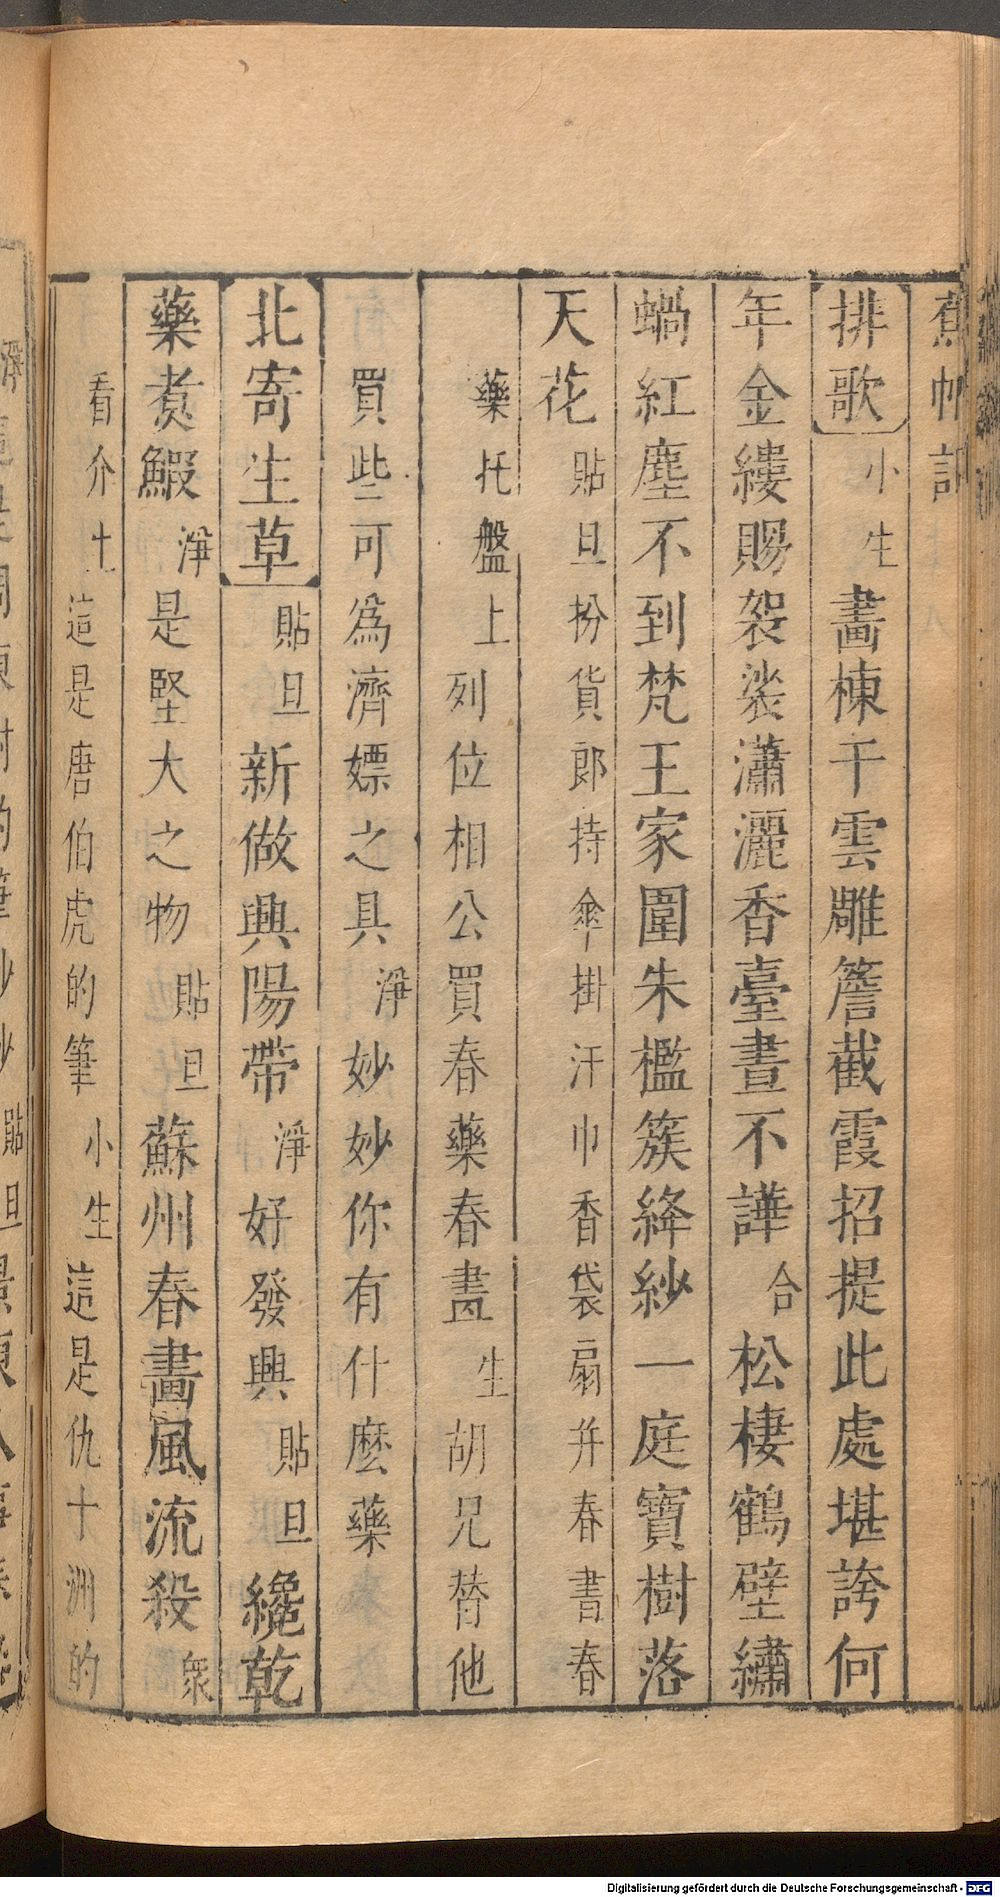 蕉帕記
排歌小生畵棟干雲雕簷截霞招提此處堪誇何
年金縷賜袈裟瀟灑香臺晝不譁合松棲鶴壁繡
蝸紅塵不到梵王家圍朱檻簇絳紗一庭寶樹落
天花貼旦扮貨郎持傘掛汗巾香袋扇并春書春
藥托盤上列位相公買春藥春畵生胡兄替他
買些可為濟嫖之具淨妙妙你有什麼藥
北寄生草貼旦新做興陽帶淨好發興貼旦纔乾
藥煮鰕淨是堅大之物貼旦蘇州春畵風流殺衆
看介土這是唐伯虎的筆小生這是仇十洲的
Digitalisierung gefördert durch die Deutsche Forschungsgemeinschaft - DFG